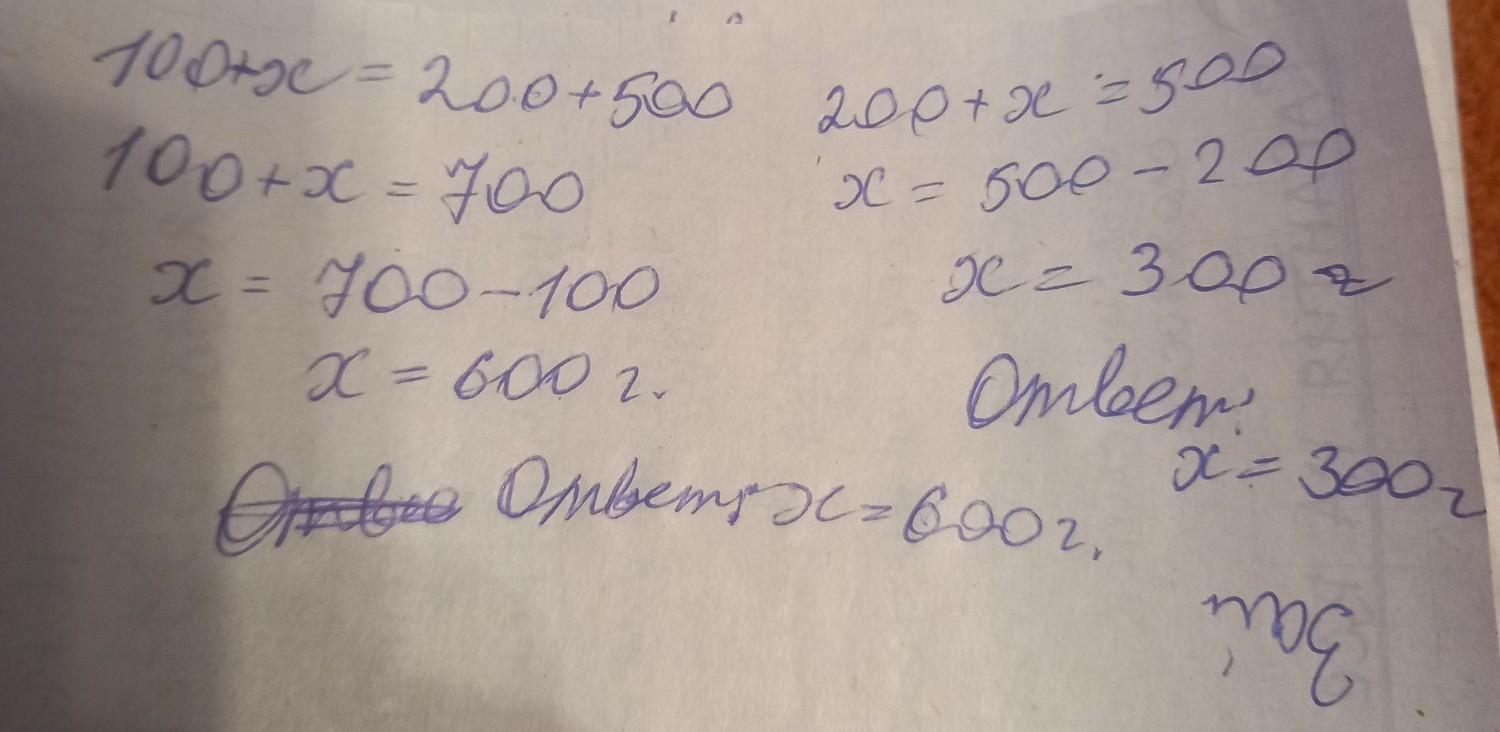 100+x = 200+500
100+x = 700
x = 700-100
x = 600 г.
Ответ: x = 600 г.
200+x = 500
x = 500-200
x = 300 г
Ответ:
x = 300 г